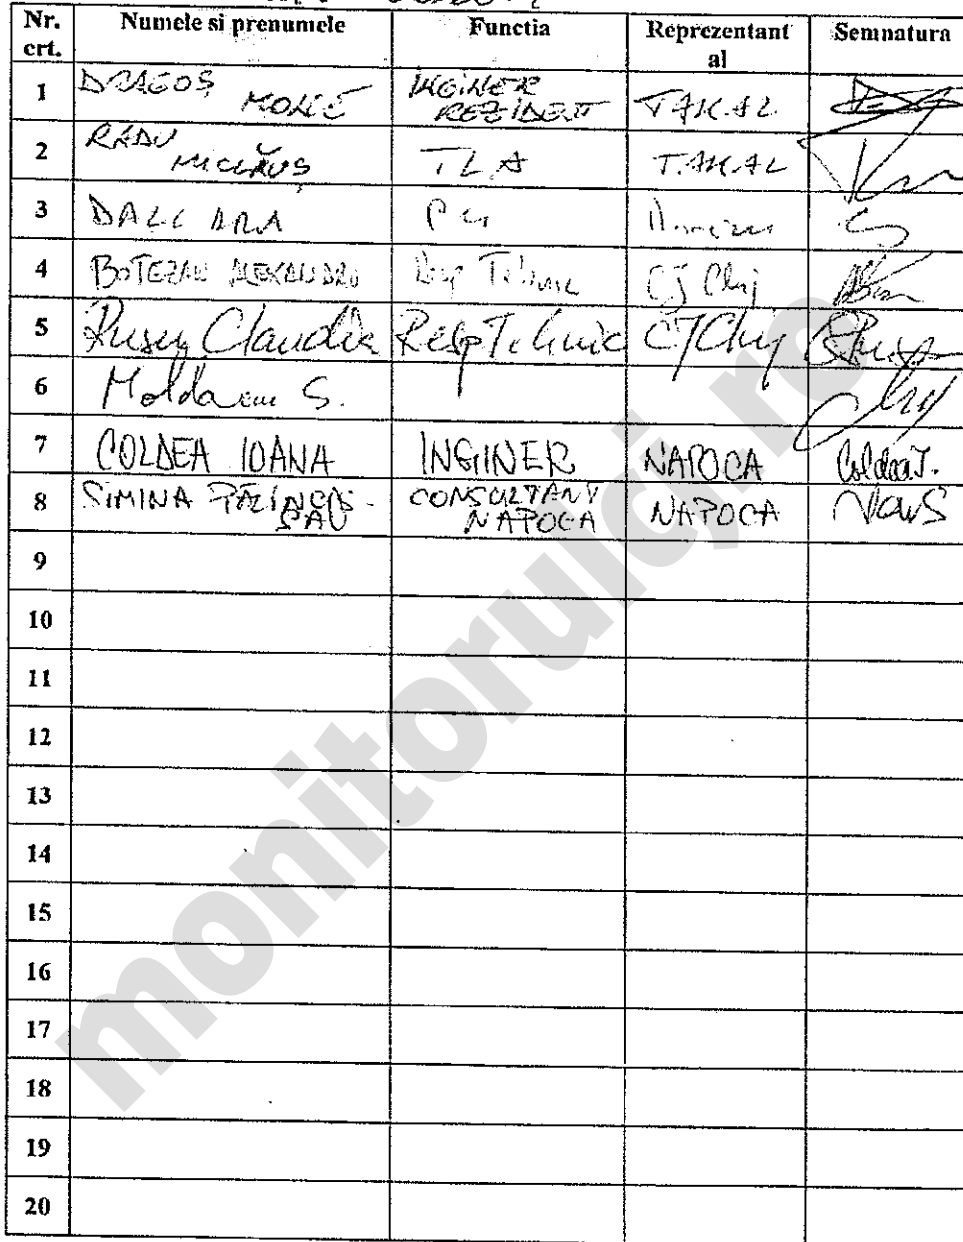 Nr. crt. Numele si prenumele Functia Reprezentant al Semnatura
1 DRAGOȘ INGINER REZIDENT TAKAL
2 RADU MICLĂUȘ TLA TAKAL
3 DALI
4 BOTEZAN ALEXANDRU Resp Tehnic CJ Cluj
5 Rusu Claudia Resp Tehnic CJ Cluj
6 Moldovan S.
7 COLDEA IOANA INGINER NAPOCA Coldea I.
8 SIMINA CONSULTANT NAPOCA NAPOCA
9
10
11
12
13
14
15
16
17
18
19
20
monitorulcj.ro